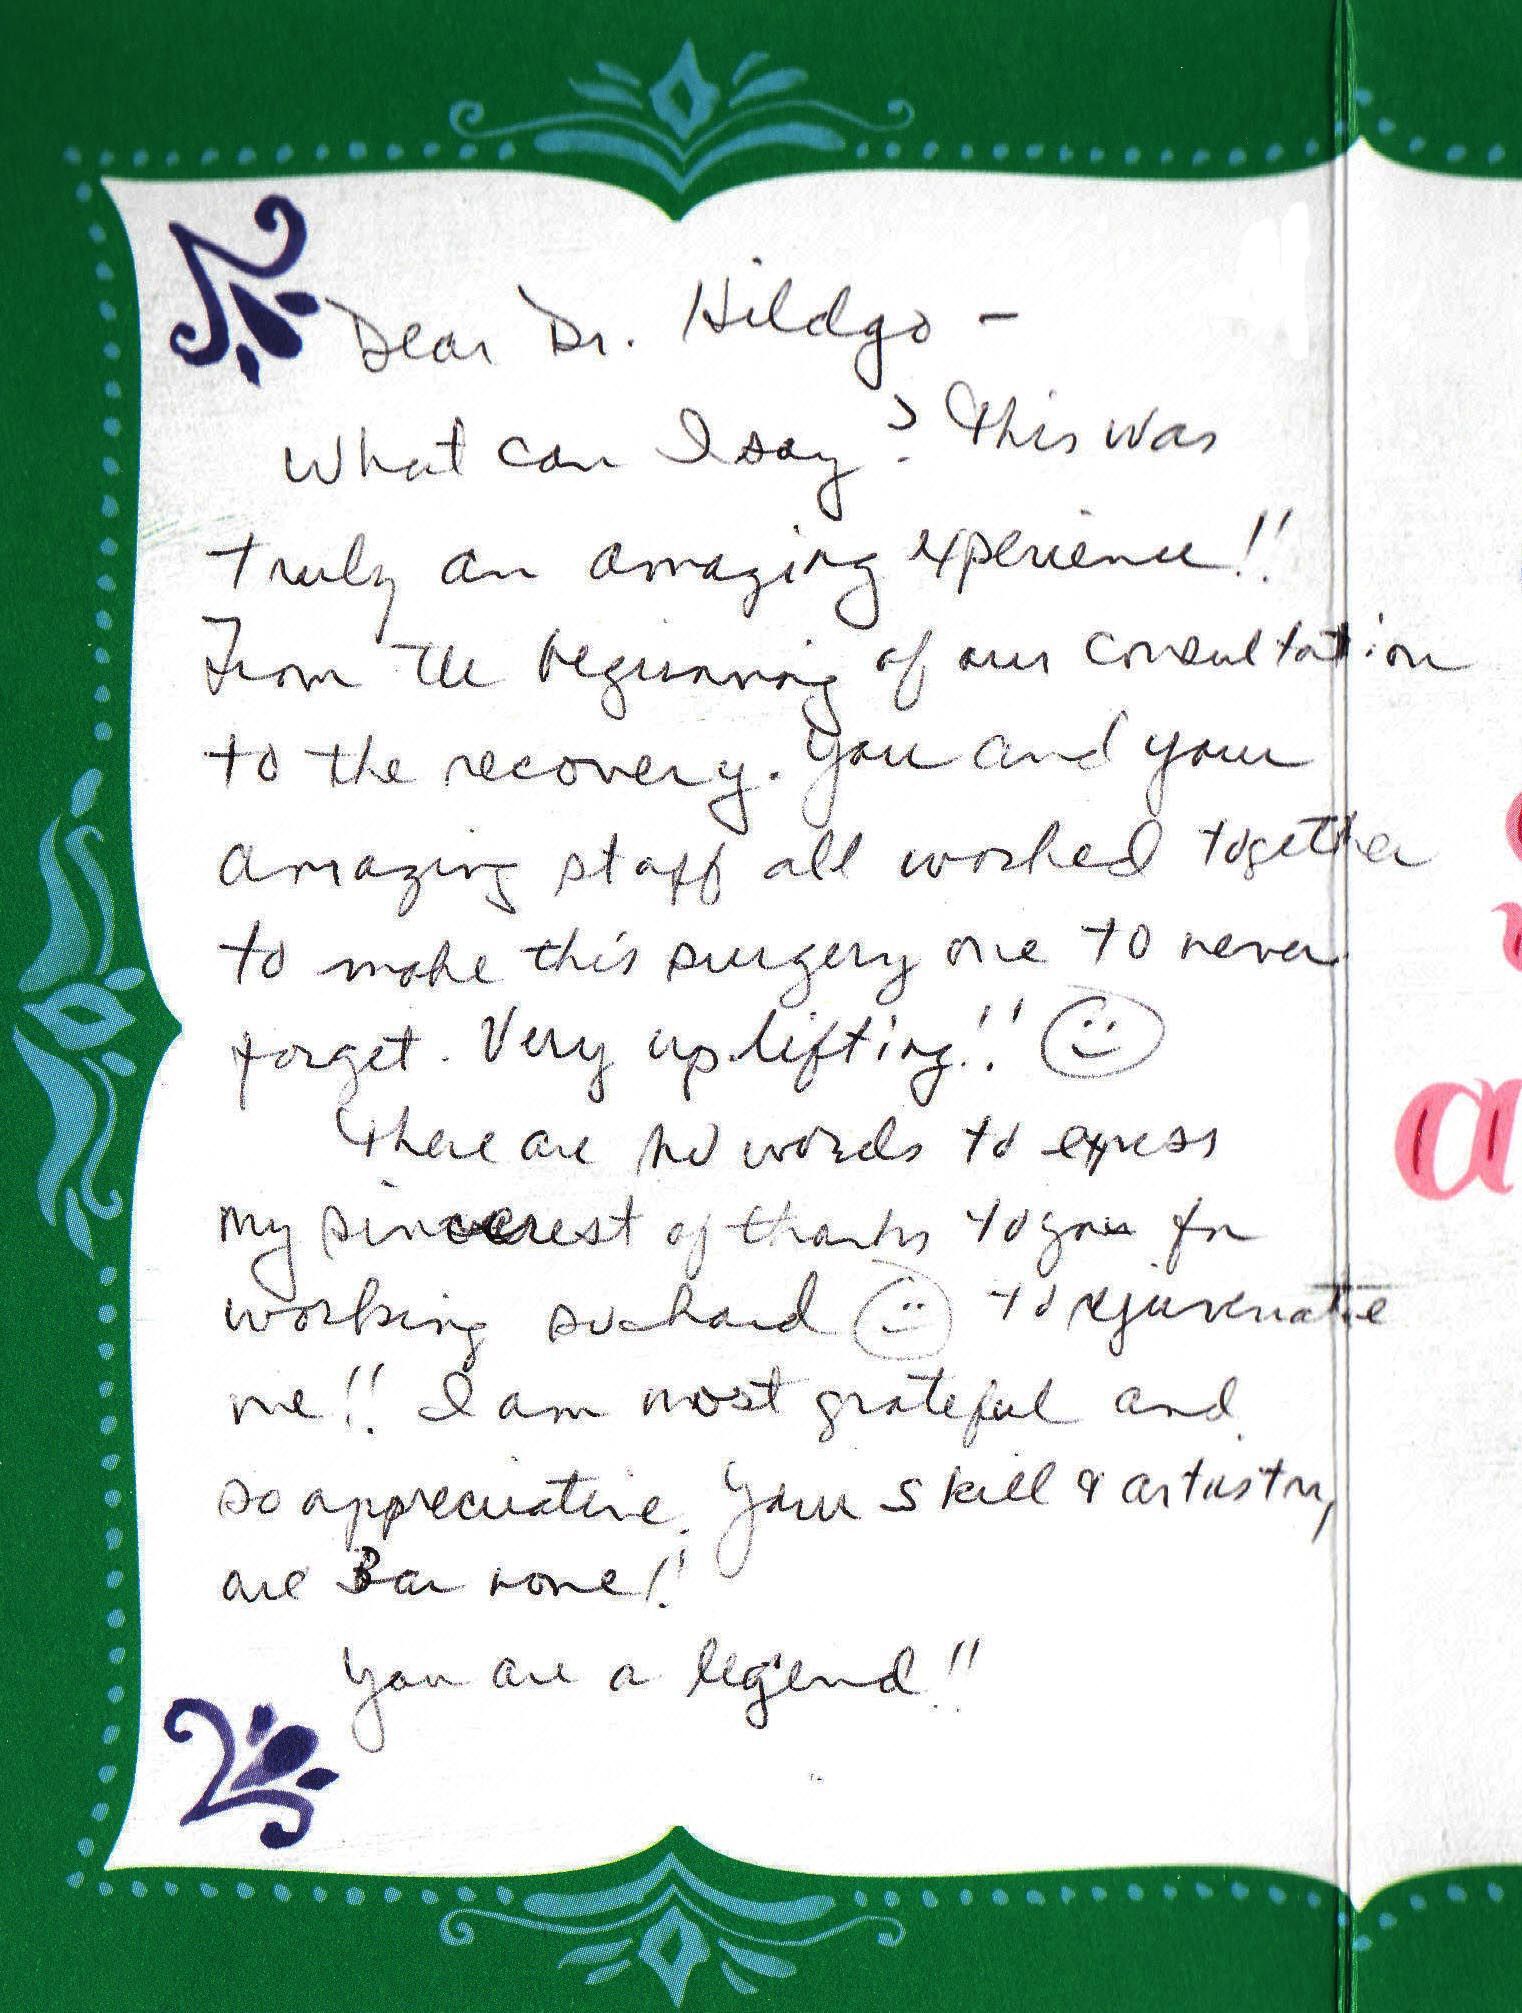 Dear Dr. Hildgo -
What can I say? This was
truly an amazing experience!!
From the beginning of our consultation
to the recovery. You and your
amazing staff all worked together
to make this surgery one to never
forget. Very uplifting!!
There are no words to express
my sincerest of thanks to you for
working so hard to rejuvenate
me!! I am most grateful and
so appreciative. Your skill & artistry
are Bar none!!
You are a legend!!
a